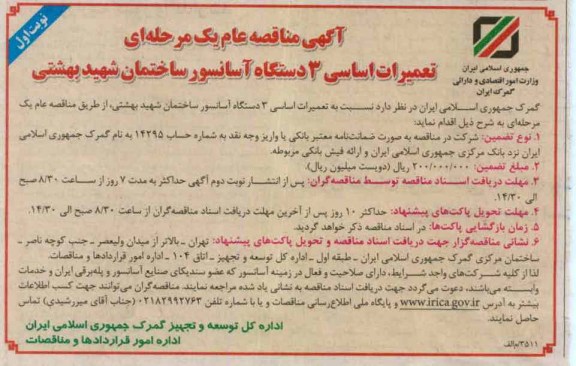 نوبت اول
آگهی مناقصه عام یک مرحله‌ای
تعمیرات اساسی ۳ دستگاه آسانسور ساختمان شهید بهشتی
جمهوری اسلامی ایران
وزارت امور اقتصادی و دارائی
گمرک ایران
گمرک جمهوری اسلامی ایران در نظر دارد نسبت به تعمیرات اساسی ۳ دستگاه آسانسور ساختمان شهید بهشتی، از طریق مناقصه عام یک
مرحله‌ای به شرح ذیل اقدام نماید:
۱. نوع تضمین: شرکت در مناقصه به صورت ضمانت‌نامه معتبر بانکی یا واریز وجه نقد به شماره حساب ۱۴۲۹۵ به نام گمرک جمهوری اسلامی
ایران نزد بانک مرکزی جمهوری اسلامی ایران و ارائه فیش بانکی مربوطه.
۲. مبلغ تضمین: ۲۰۰/۰۰۰/۰۰۰ ریال (دویست میلیون ریال).
۳. مهلت دریافت اسناد مناقصه توسط مناقصه‌گران: پس از انتشار نوبت دوم آگهی حداکثر به مدت ۷ روز از ساعت ۸/۳۰ صبح
الی ۱۴/۳۰.
۴. مهلت تحویل پاکت‌های پیشنهاد: حداکثر ۱۰ روز پس از آخرین مهلت دریافت اسناد مناقصه‌گران از ساعت ۸/۳۰ صبح الی ۱۴/۳۰.
۵. زمان بازگشایی پاکت‌ها: در اسناد مناقصه ذکر خواهد گردید.
۶. نشانی مناقصه‌گزار جهت دریافت اسناد مناقصه و تحویل پاکت‌های پیشنهاد: تهران - بالاتر از میدان ولیعصر - جنب کوچه ناصر -
ساختمان مرکزی گمرک جمهوری اسلامی ایران - طبقه اول - اداره کل توسعه و تجهیز - اتاق ۱۰۴ - اداره امور قراردادها و مناقصات.
لذا از کلیه شرکت‌های واجد شرایط، دارای صلاحیت و فعال در زمینه آسانسور که عضو سندیکای صنایع آسانسور و پله‌برقی ایران و خدمات
وابسته می‌باشند، دعوت می‌گردد جهت دریافت اسناد مناقصه به نشانی یاد شده مراجعه نمایند. مناقصه‌گران می‌توانند جهت کسب اطلاعات
بیشتر به آدرس www.irica.gov.ir و پایگاه ملی اطلاع‌رسانی مناقصات و یا با شماره تلفن ۰۲۱۸۲۹۹۲۷۶۳ (جناب آقای میررشیدی) تماس
حاصل نمایند.
اداره کل توسعه و تجهیز گمرک جمهوری اسلامی ایران
اداره امور قراردادها و مناقصات
۳۵۱۱/م‌الف